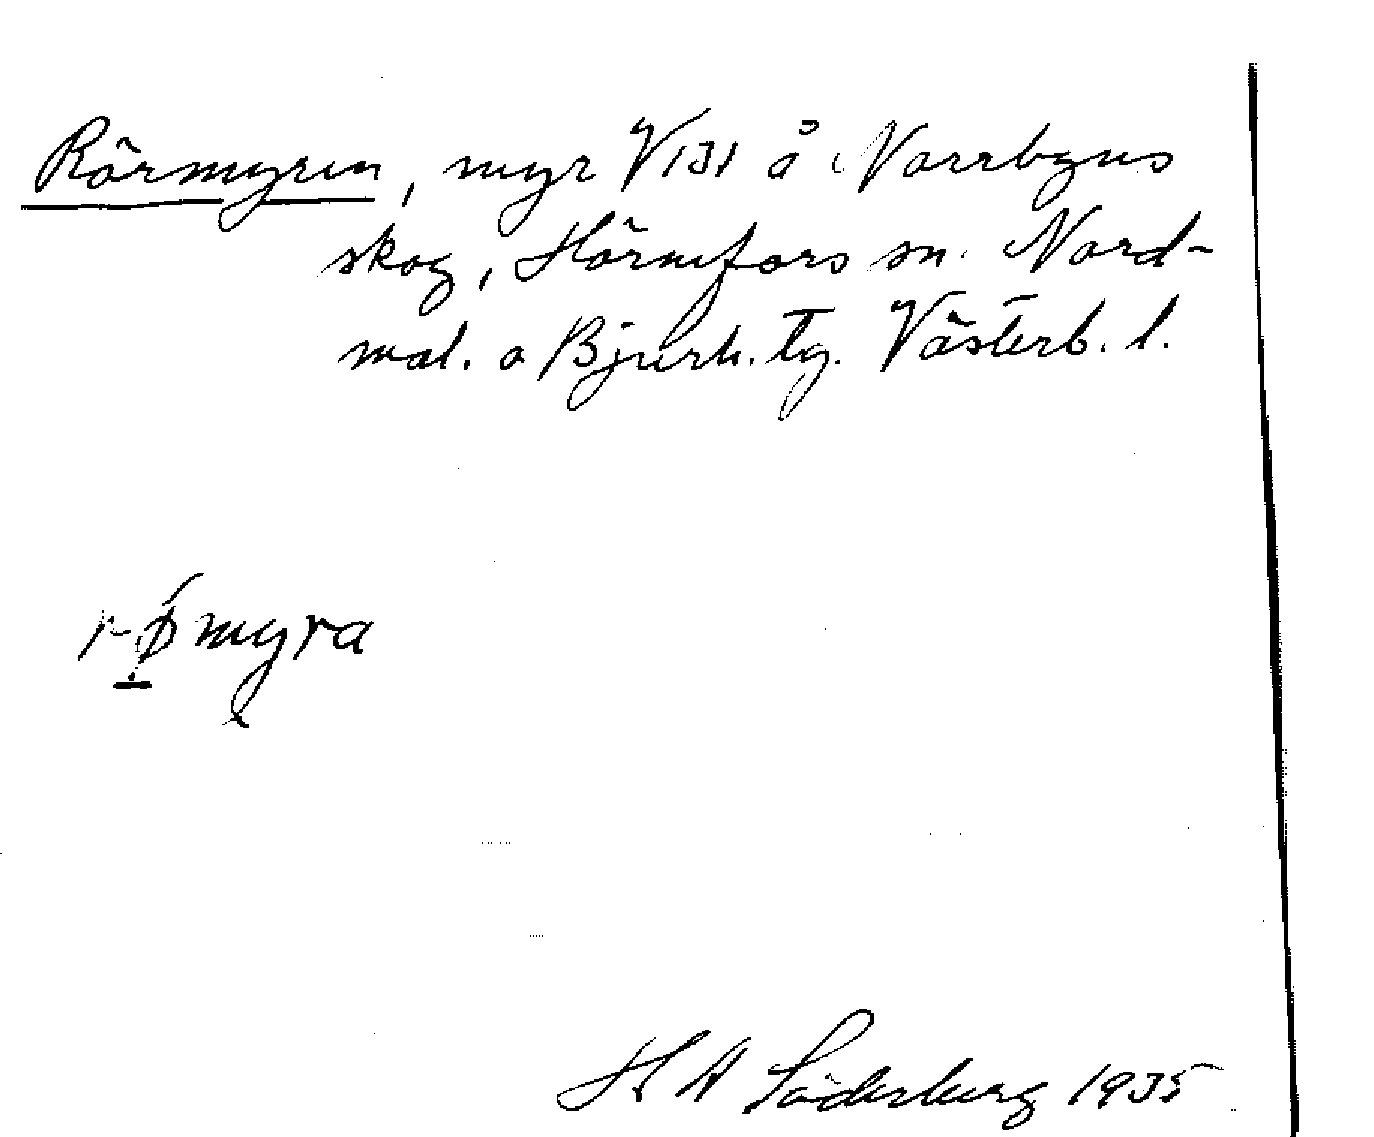 Rörmyren, myr V131 å Norrbyns
skog, Hörnefors sn. Nord-
mal. o Bjurh. tg. Västerb. l.
myra
H A Söderberg 1935